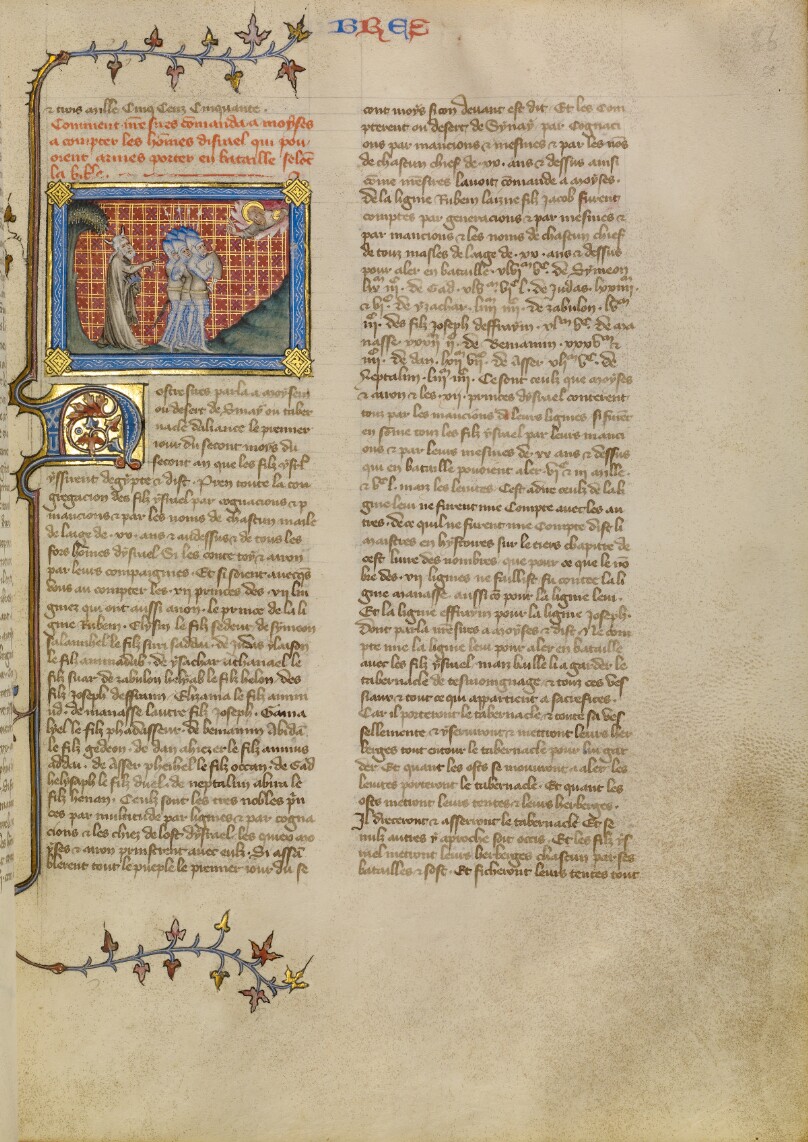 BRES
& trois mille Cinq Cenz Cinquante.
Comment nre sires comanda a moyses
a compter les hõmes disrael qui pou
oient armes porter en bataille selõc
la b.
ostre sires parla a moysen
ou desert de Sinay ou taber
nacle daliance le premier
iour du secont moys du
secont an que les filz
yssirent degypte & dist. Pren toute la con
gregacion des filz ysrael par cognacions & p
mancions & par les noms de chascun masle
de laage de .xx. ans & au dessus & de tous les
fors hõmes dysrael Si les conte toy & aaron
par leurs compaignies. Et si soient auecqs
vous au compter les .xii princes des .xii lin
gnies qui ont aussi a non. le prince de la li
gne Ruben. Elysur le fil sedeur. de symeon
Salamihel le fil suri saddai. de Judas
le fil aminadab. de ysachar nathanael le
fil suar. de zabulon helyab le fil helon. des
filz Joseph deffraim. Elizama le fil amiu
ud. de manasse lautre filz Joseph. Gama
lyel le filz phadasseur. de beniamin Abidã
le filz gedeon. de dan ahiezer le filz amius
addai. de Asser pheihel le filz occran. de Gad
helysaph le filz duel. de neptalim ahira le
filz henan. Ceulz sont les tres nobles prin
ces par multitude par lignies & par cogna
cions & les chiez de lost dysrael les quiex mo
yses & aaron prinstrent auec eulz. Si assã
blerent tout le pueple le premier iour du se
cont moys si con deuant est dit. Et les Com
pterent ou desert de Synay par Cognaci
ons par mancions & mesnies & par les nõs
de chascun chief de .xx. ans & dessus ainsi
cõme nresires lauoit comande a moyses.
de la ligne Ruben lainzne fil Jacob furent
comptes par generacions & par mesnies &
par mancions & les noms de chascun chief
de touz masles de laage de .xx. ans & dessus
pour aler en bataille. de Symeon
de Gad. de Judas.
de ysachar. de zabulon.
des filz Joseph deffraym. de ma
nasse de Beniamin
de dan. de Asser de
Neptalim. Ce sont ceulz que moyses
& aaron & les .xii. princes dysrael conterent
touz par les mancions de leurs lignies. si furẽt
en sõme touz les filz ysrael par leurs manci
ons & par leurs mesnies de .xx ans & dessus
qui en bataille pouoient aler mille.
maz les leuites. Cest adire ceulz de la li
gnie leui ne furent mie Compte auec les au
tres. de ce quil ne furent mie Compte dist li
maistres en hystoires sur le tiers chapitre de
cest liure des nombres que pour ce que le nõ
bre des .xii lignies ne faillist fu contee la li
gnie manasse. aussi cõ pour la ligne leui.
Et la ligne effraym pour la ligne Joseph.
Dont parla nresires a moyses & dist. Ne com
pte mie la ligne leui pour aler en bataille
auec les filz ysrael. maiz baille li a garder le
tabernacle de tesmoingnage. & touz ces ves
siaux & tout ce qui appartient a sacrefices.
Car il porteront le tabernacle & toute sa ves
sellemente & y seruiront & mettront leurs her
berges tout entour le tabernacle pour lui gar
der. Et quant les osts se mouuront a aler les
leuites porteront le tabernacle. Et quant les
osts mettront leurs tentes & leurs herberges.
Il dreceront & asserront le tabernacle. Et se
nulz autres y aproche soit occis. Et les filz ys
rael mettront leurs herberges chascun par ses
batailles & sost. Et ficheront leurs tentes tout